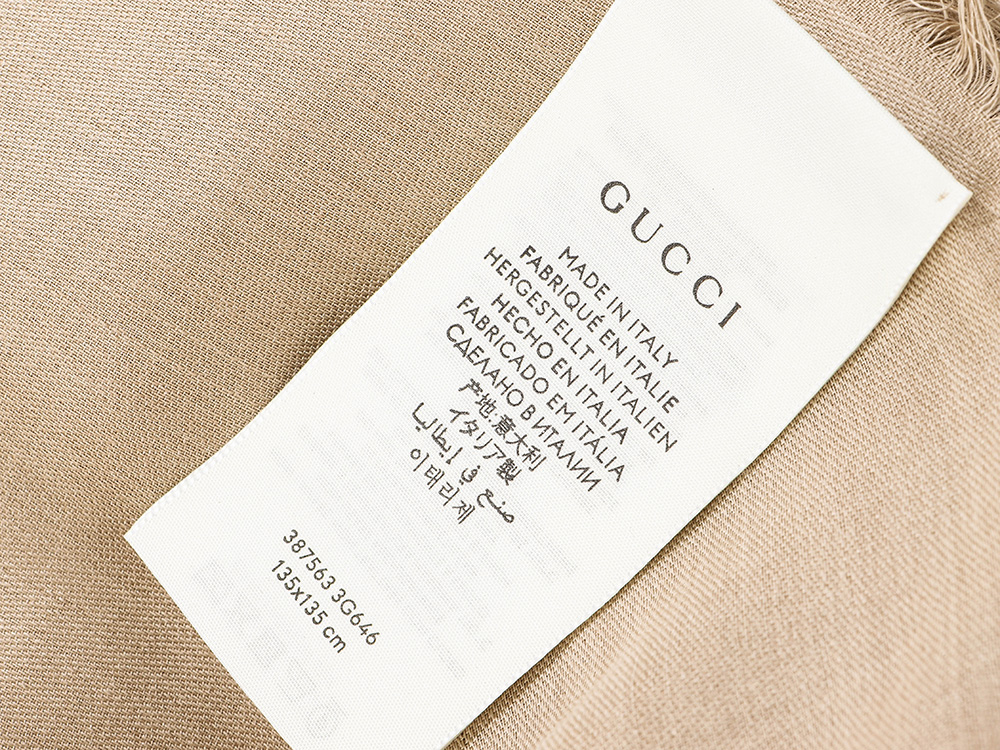 GUCCI
MADE IN ITALY
FABRIQUÉ EN ITALIE
HERGESTELLT IN ITALIEN
HECHO EN ITALIA
FABRICADO EM ITÁLIA
СДЕЛАНО В ИТАЛИИ
产地:意大利
イタリア製
صنع في إيطاليا
이태리제
387563 3G646
135x135 cm